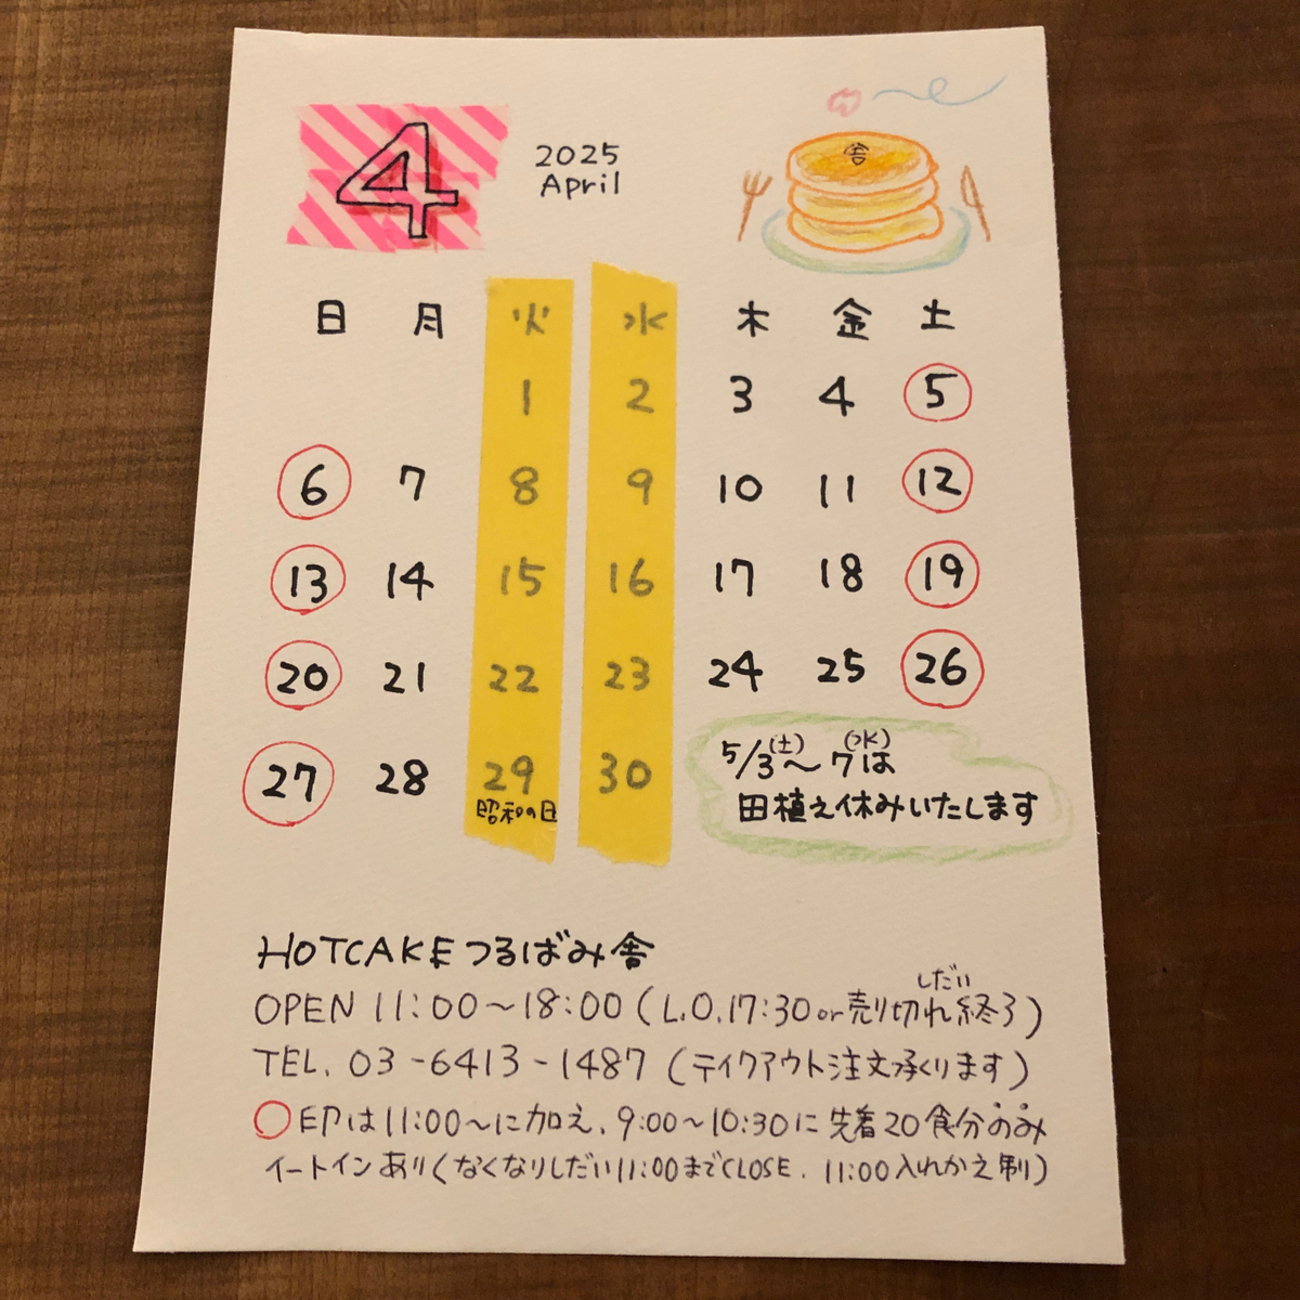 4
2025
April
舎
日 月 火 水 木 金 土
1 2 3 4 5
6 7 8 9 10 11 12
13 14 15 16 17 18 19
20 21 22 23 24 25 26
27 28 29 30
昭和の日
5/3(土)~7(水)は
田植え休みいたします
HOTCAKE つるばみ舎
OPEN 11:00~18:00 (L.O.17:30 or 売り切れ終了)
しだい
TEL. 03-6413-1487 (テイクアウト注文承くります)
○印は11:00~に加え、9:00~10:30に先着20食分のみ
イートインあり(なくなりしだい11:00までCLOSE. 11:00入れかえ制)